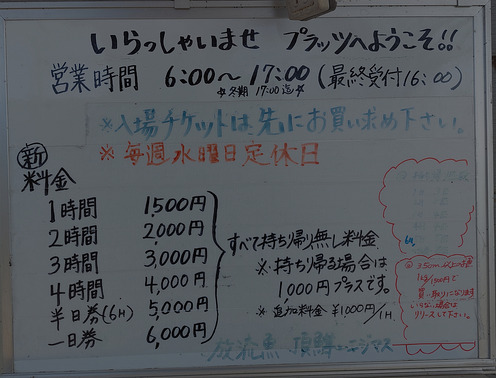 いらっしゃいませ プラッツへようこそ!!
営業時間 6:00〜17:00(最終受付16:00)
☆冬期 17:00迄☆
※入場チケットは先にお買い求め下さい。
※毎週水曜日定休日
新料金
1時間 1,500円
2時間 2,000円
3時間 3,000円
4時間 4,000円
半日券(6H) 5,000円
一日券 6,000円
すべて持ち帰り無し料金
※持ち帰る場合は
1000円プラスです。
※追加料金 ¥1000/1H
放流魚 頂鱒 ニジマス
35cm以上
1kg/1500円で
買い取りになります
いらない場合は
リリースして下さい。